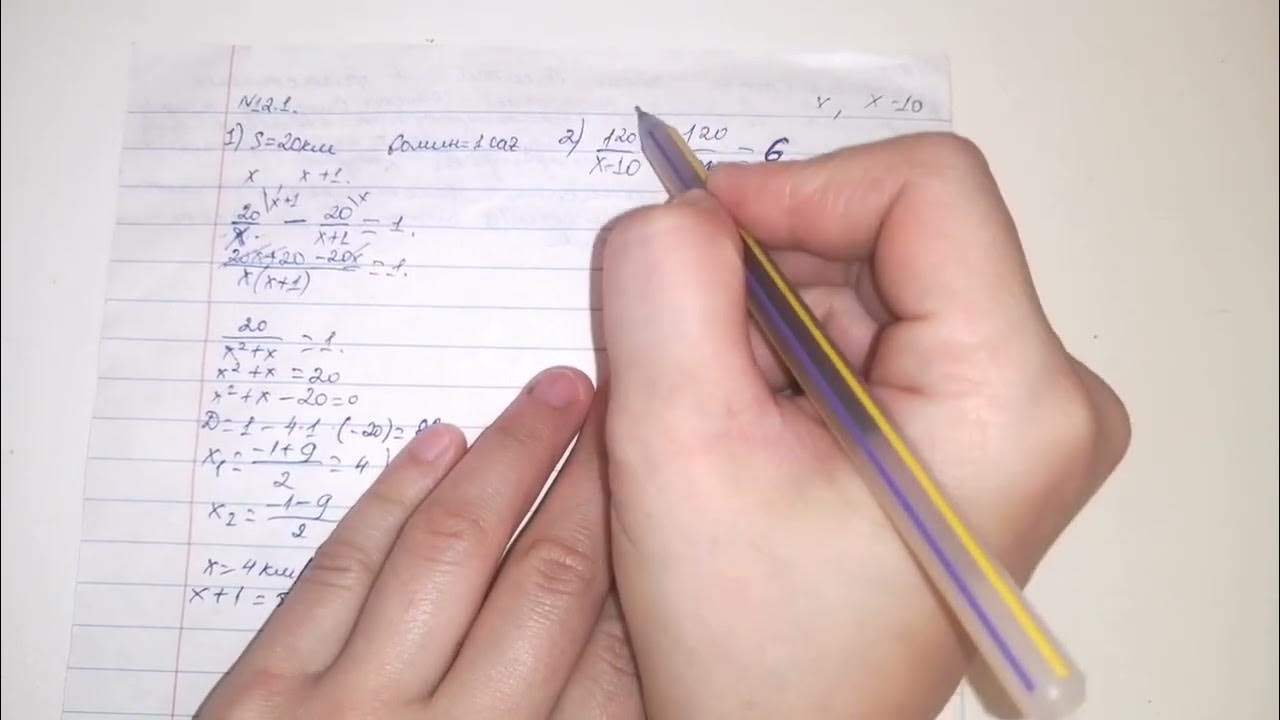 N12.1.
x, x-10
1) S=20км 60мин=1 сағ
x x+1.
20/x \x+1 - 20/x+1 \x = 1.
20x+20-20x/x(x+1) = 1.
20/x²+x = 1.
x²+x=20
x²+x-20=0
D=1-4·1·(-20)=
x₁= -1+9/2 = 4
x₂= -1-9/2
x=4км
x+1=
2) 120/x-10 120 = 6